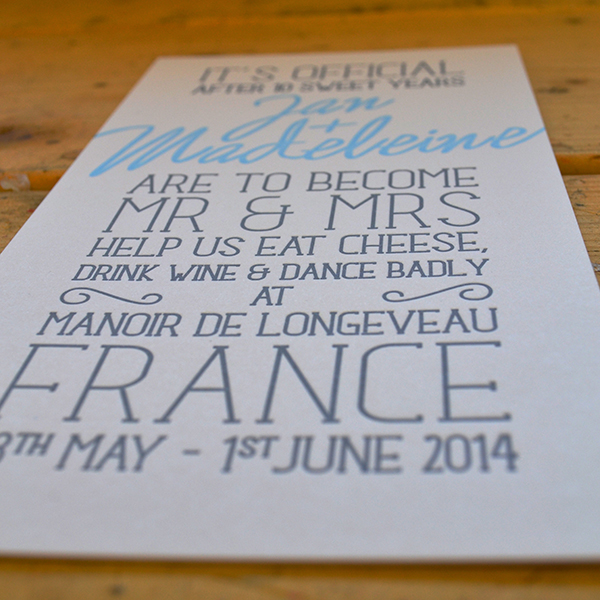 IT'S OFFICIAL
AFTER 10 SWEET YEARS
Jan
+
Madeleine
ARE TO BECOME
MR & MRS
HELP US EAT CHEESE,
DRINK WINE & DANCE BADLY
AT
MANOIR DE LONGEVEAU
FRANCE
MAY - 1ST JUNE 2014